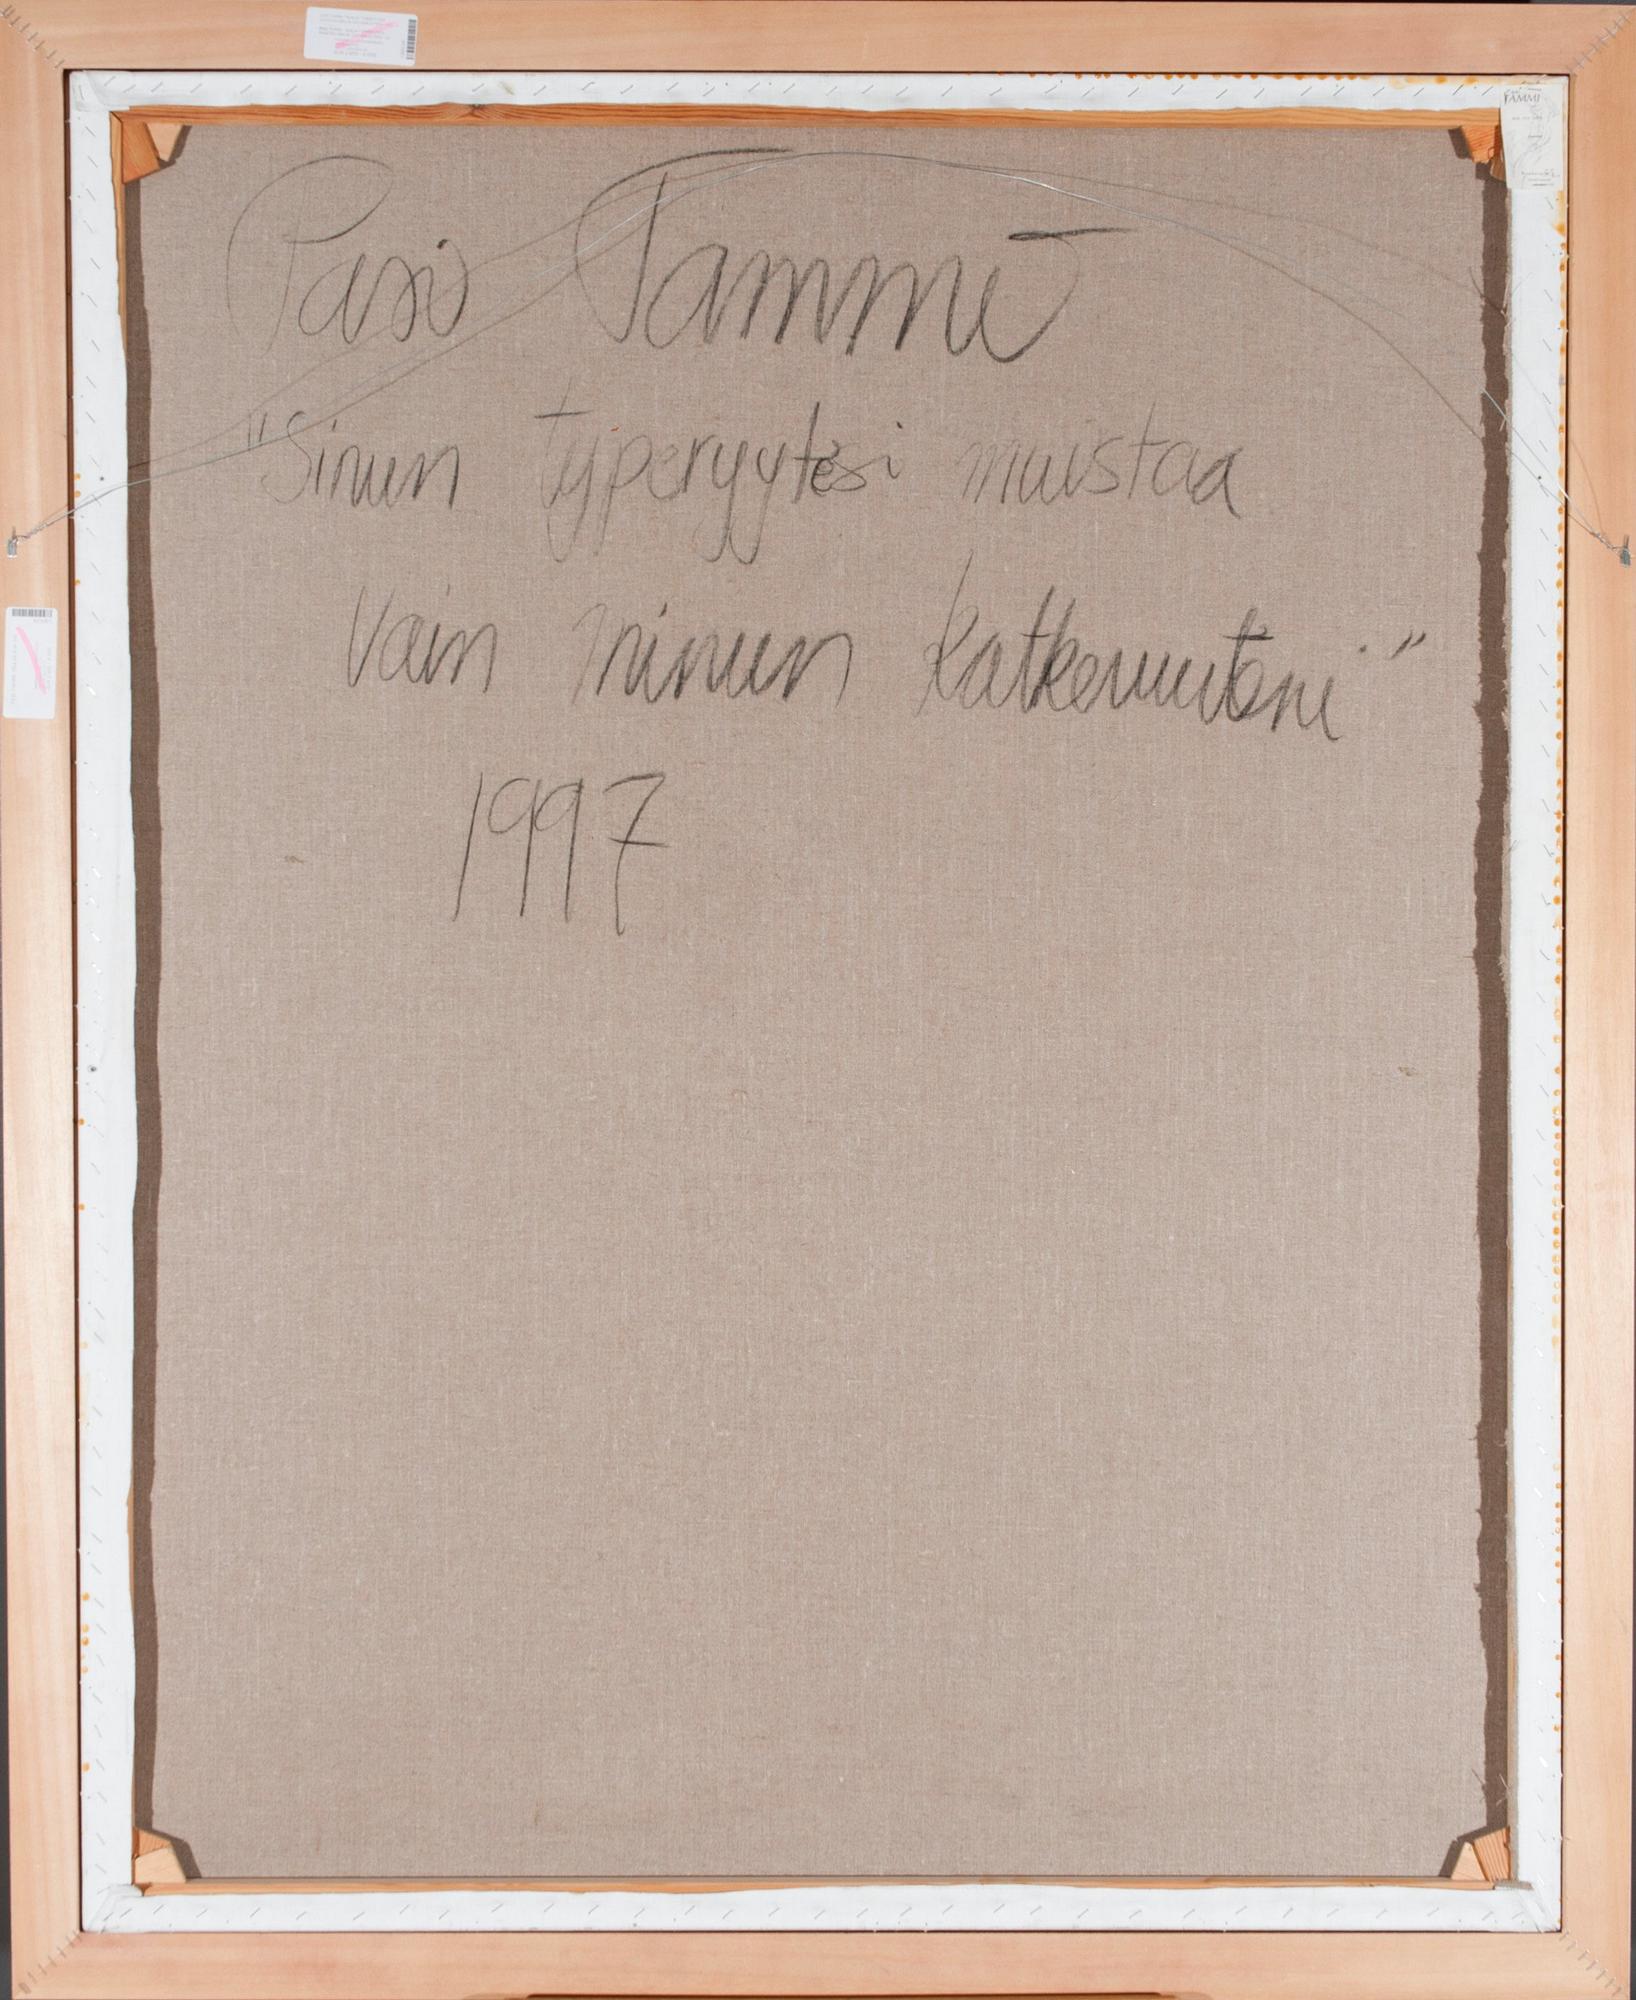 Pasi Tammi
"Sinun typeryytesi muistaa
vain minun katkeruuteni"
1997
TAMMI